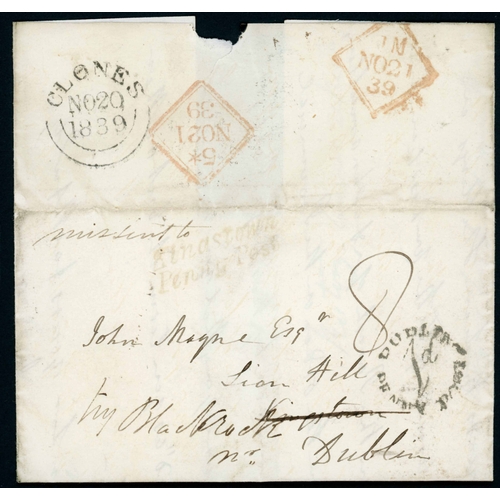 CLONES
NO20
1839
5*
NO21
39
IN
NO21
39
missent to
Kingstown
Penny Post
8
John Magne Esqr
Lion Hill
try Blackrock Kingstown
nr Dublin
DUBLIN
1d